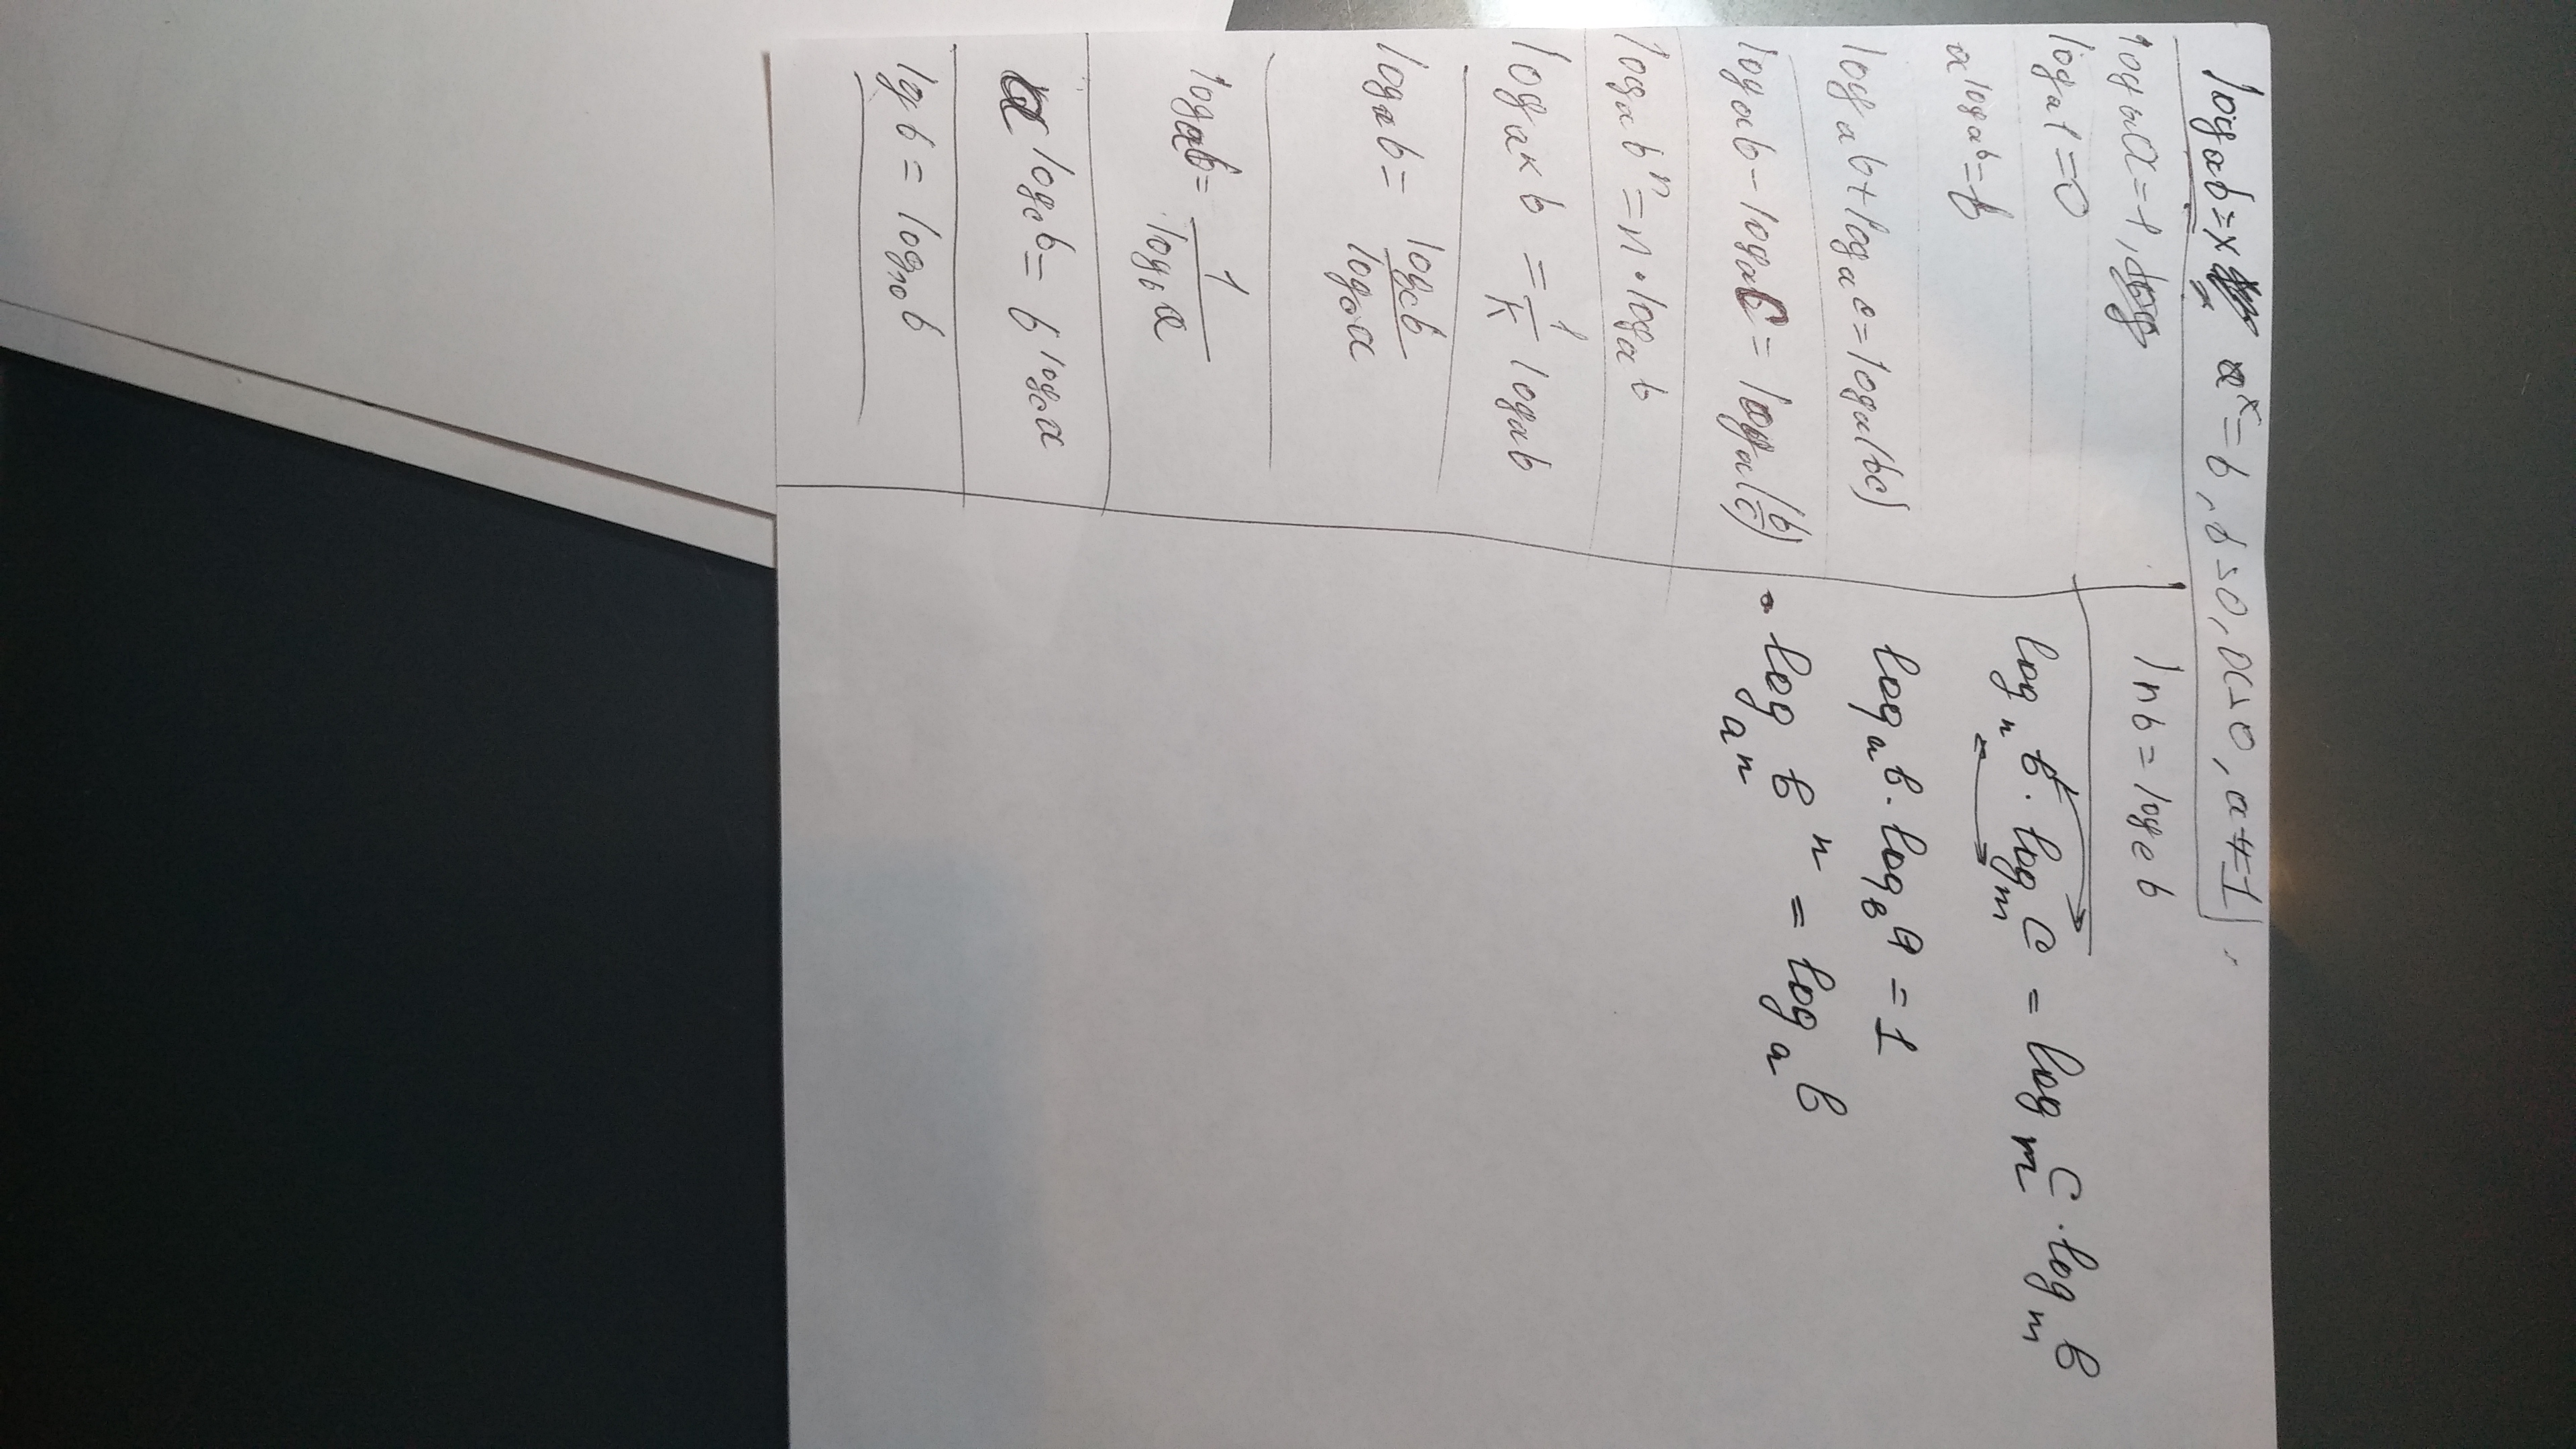 logₐb=x, aˣ=b, b>0, a>0, a≠1
logₐa=1,
logₐ1=0
a^(logₐb)=b
logₐb+logₐc=logₐ(bc)
logₐb-logₐc=logₐ(b/c)
logₐbⁿ=n·logₐb
log_(aᵏ) b = 1/k logₐb
logₐb = log_c b / log_c a
logₐb = 1 / log_b a
a^(log_c b) = b^(log_c a)
lg b = log₁₀ b
ln b = logₑ b
log_n b · log_m c = log_m c · log_m b
logₐb · log_b a = 1
• log_(aⁿ) bⁿ = logₐ b